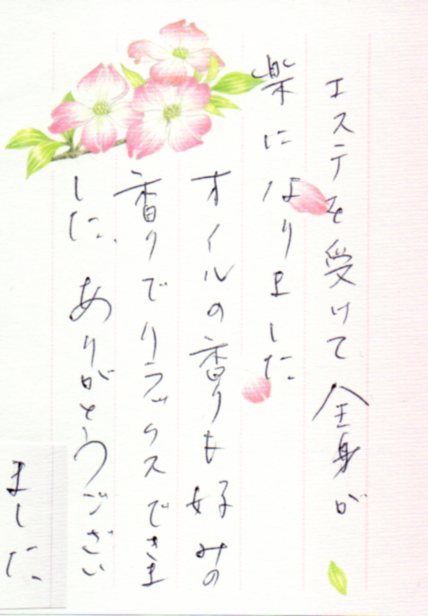 エステを受けて全身が
楽になりました
オイルの香りも好みの
香りでリラックスできま
した、ありがとうござい
ました、